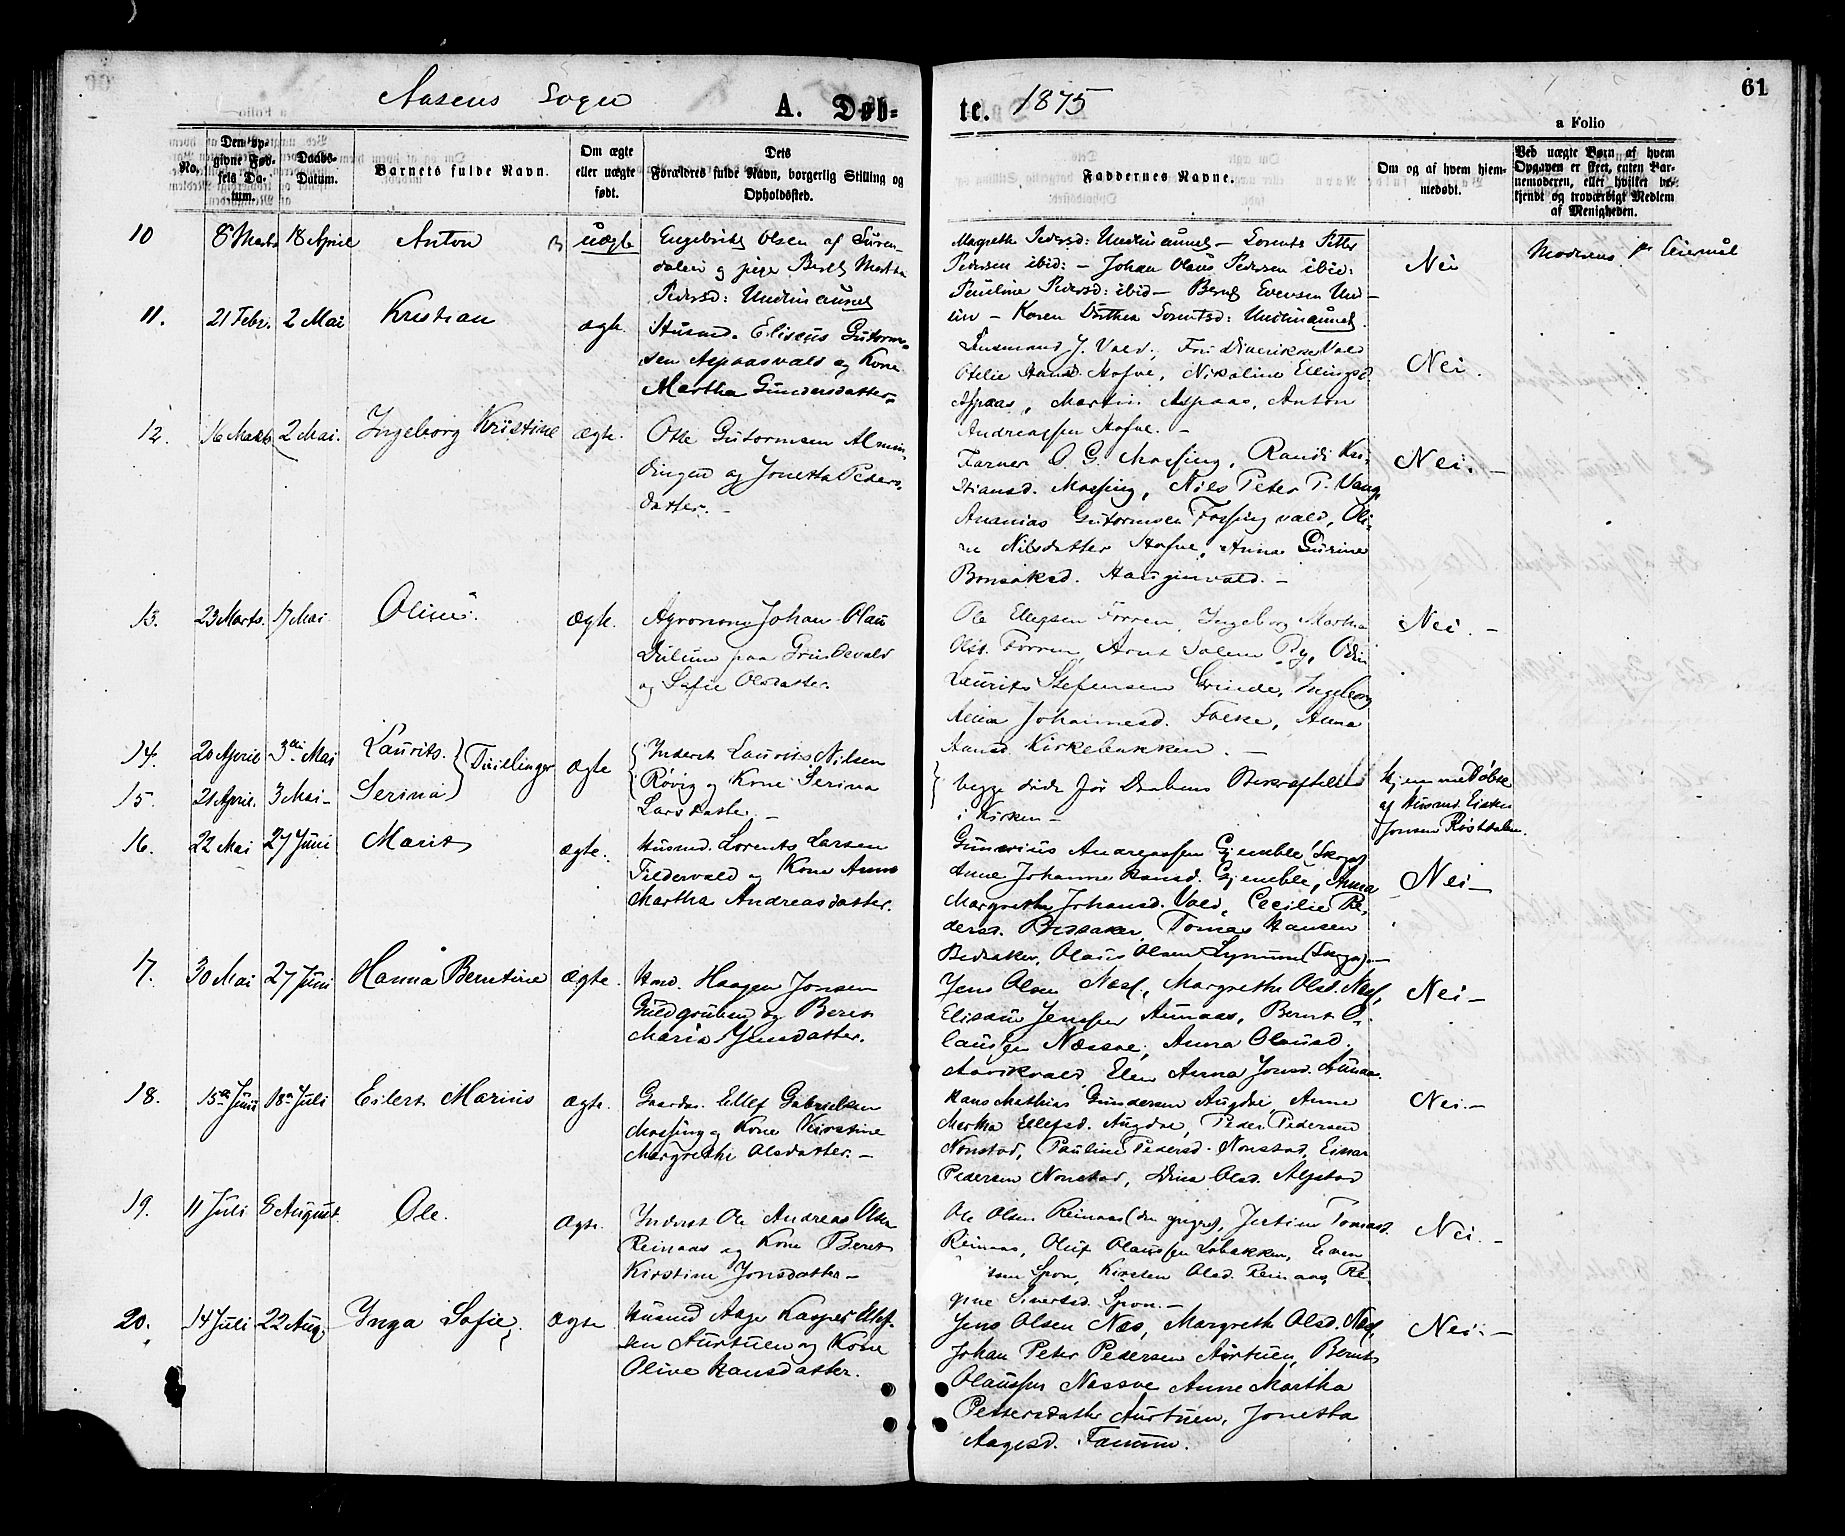 61
Aasens Sogn
A. Døb-
te. 1875
a Folio
No.
Den op-
givne Fød-
sels Da-
tum.
Daabs-
Datum.
Barnets fulde Navn.
Om ægte
eller uægte
født.
Dets
Forældres fulde Navn, borgerlig Stilling og
Opholdssted.
Faddernes Navne.
Om og af hvem hjem-
medøbt.
Ved uægte Børn af hvem
Opgaven er skeet, enten Bar-
nemoderen, eller hvilket be-
kjendt og troværdigt Medlem
af Menigheden.
10 8 Marts 18 April Anton uægte
Engebrikt Olsen af Suren-
dalen og pige Beret Martha
Pedersd:
Magrethe Pedersd: Lorents Petter
Pedersen ibid: – Johan Olaus Pedersen ibid:
Pauline Pedersd: ibid – Bernt Evensen Und-
lin – Karen Dorthea Lorentsd:
Nei
Moderens
11. 21 Febr. 2 Mai Kristian ægte.
Husmd. Eliseus Gutorm-
sen Aspaasvald og Kone
Martha Gundersdatter.
Lensmand J. Vald,
Otelie Hansd. Hofve, Nikoline Ellingsd.
Aspaas, Martin Aspaas, Anton
Andreassen Hofve. –
Nei.
12. 16 Marts 2 Mai. Ingeborg Kristine ægte.
Otte Gutormsen Almin-
dingen og Jonetta Peders-
datter. –
O. G. Mossing, Randi Kri-
stiansd. Mossing, Nils Peter P. Vang,
Ananias Gutormsen Fossingvald, Oli-
ne Nilsdatter Hofve, Anna Gurine
Bonsaksd. Hauginvald. –
Nei. –
13. 23 Marts. 17 Mai Oline. ægte.
Agronom Johan Olau
Dullum paa Grindevald
og Sofie Olsdatter.
Ole Ellefsen Forrem, Ingeborg Martha
Olsd. Forrem, Arnt Salem Ry, Odin
Laurits Stefensen Grinde, Ingeborg
Anna Johannesd. Fosse, Anna
Hansd. Kirkebakken. –
Nei. –
14. 20 April 3die Mai Laurits.
15. 21 April. 3 Mai – Serina
Tvillinger ægte
Inderst Laurits Nilsen
Røvig og Kone Serina
Larsdatter. –
begge døde før Daabens Bekræftelse
i Kirken –
hjemmedøbte
af Husmd.
Jonsen
16. 22 Mai 27 Juni Marit ægte.
Husmd. Lorents Larsen
Fildervald og Kone Anne
Martha Andreasdatter.
Gunerius Andreassen Gjemble (Skogn)
Anne Johanne Hansd. Gjemble, Anna
Margrethe Johansd. Vald, Cecilie Pe-
dersd. Tomas Hansen
Olaus Olsen Lynum (Skogn). –
Nei –
17. 30 Mai 27 Juni Hanna Berntine ægte.
Hmd. Haagen Jonsen
Guldgruben og Beret
Maria Jensdatter.
Jens Olsen Næss, Margrethe Olsd. Næss,
Elisæus Jenssen Aunaas, Bernt O-
laussen Næssve, Anna Olausd.
Elen Anna Jonsd. Aunaas.
Nei –
18. 15de Juni 18de Juli Eilert Marius ægte.
Gaardm. Ellef Gabrielsen
Mossing og Kone Kirstine
Margrethe Olsdatter. –
Hans Mathias Gundersen Augdal, Anne
Martha Ellefsd. Augdal, Peder Pedersen
Nonstad, Pauline Pedersd. Nonstad, Einar
Pedersen Nonstad, Olsd. Alstad
Nei. –
19. 11 Juli 8 August Ole. ægte.
Inderst Ole Andreas Olsen
Reinaas og Kone Beret
Kirstine Jonsdatter –
Ole Olsen Reinaas (den yngre), Justine Tomasd.
Reinaas, Oluf Olaussen Lobakken, Even
Spon, Kirsten Olsd. Reinaas, Re-
gine Sivertsd. Spon. –
Nei. –
20. 14 Juli 22 Aug. Inga Sofie ægte
Husmd Aage Kasper Ellef-
sen Aurtuen og Kone
Olive Hansdatter.
Jens Olsen Næs, Margrethe Olsd. Næss,
Johan Peter Pedersen Aurtuen, Bernt
Olaussen Nessve Anne Martha
Pettersdatter Aurtuen, Jonetta
Aagesd. Fanum.
Nei. –